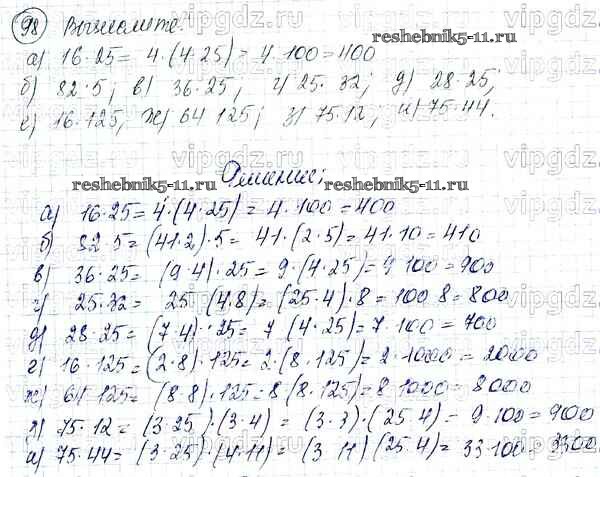 98 Вычислите:
а) 16·25 = 4·(4·25) = 4·100 = 400
reshebnik5-11.ru
б) 82·5; в) 36·25; г) 25·32; д) 28·25;
е) 16·125; ж) 64 125; з) 75·12; и) 75·44.
Решение:
reshebnik5-11.ru reshebnik5-11.ru
а) 16·25 = 4·(4·25) = 4·100 = 400
б) 82·5 = (41·2)·5 = 41·(2·5) = 41·10 = 410
в) 36·25 = (9·4)·25 = 9·(4·25) = 9 100 = 900
г) 25·32 = 25 (4·8) = (25·4)·8 = 100 8 = 800
д) 28·25 = (7·4)·25 = 7 (4·25) = 7·100 = 700
г) 16·125 = (2·8)·125 = 2·(8·125) = 2·1000 = 2000
ж) 64 125 = (8·8)·125 = 8 (8·125) = 8 1000 = 8000
з) 75·12 = (3·25)·(3·4) = (3·3)·(25 4) = 9·100 = 900
и) 75·44 = (3·25)·(4·11) = (3 11) (25·4) = 33·100 = 3300
vipgdz.ru